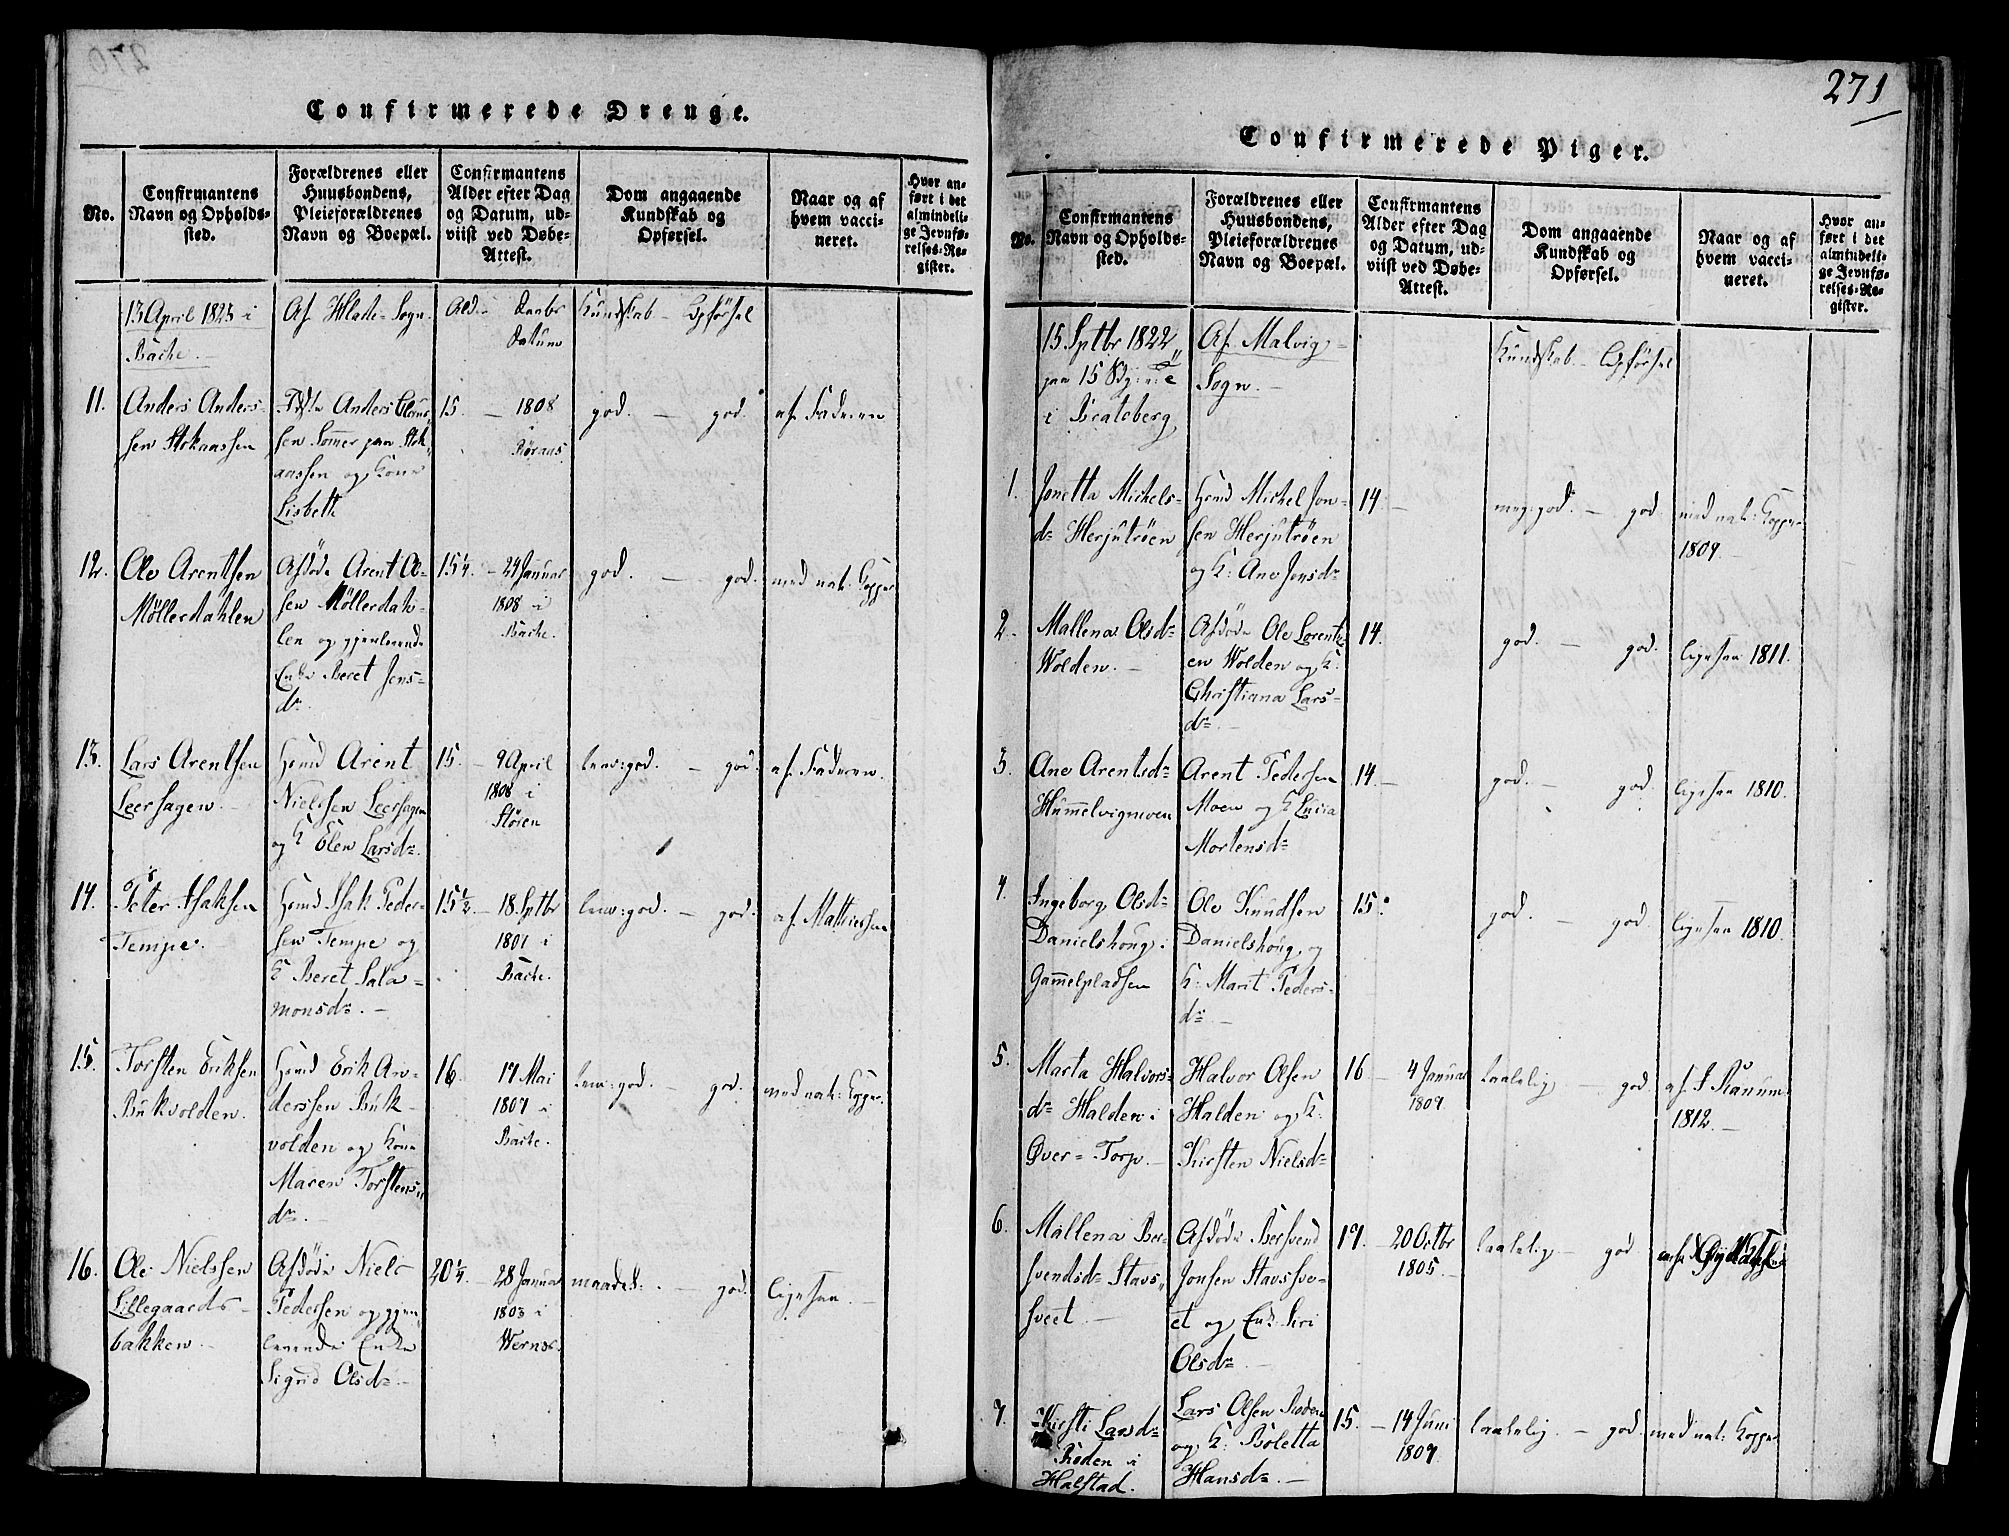 271
Confirmerede Drenge.
No.
Confirmantens
Navn og Opholds-
sted.
Forældrenes eller
Huusbondens,
Pleieforældrenes
Navn og Boepæl.
Confirmantens
Alder efter Dag
og Datum, ud-
viist ved Døbe-
Attest.
Dom angaaende
Kundskab og
Opførsel.
Naar og af
hvem vacci-
neret.
Hvor an-
ført i det
almindeli-
ge Jevnfø-
relses-Re-
gister.
13 April 1823 i
Bache.
Af Hlade-Sogn
Ald. Daabs
Datum
Kundskab - Opførsel
11.
Anders Anders-
sen Stokaassen
Anders
sen Sommer paa Stok
aassen og Kone
Lisbeth
15. - 1808
i
Røraas
god. - god.
af Faderen
12.
Ole Arentsen
Møllerdahlen
Afdøde Arent Ol-
sen Møllerdah-
len og gjenlevende
Enke Beret Jens-
dr
15 1/4. - 24 Januar
1808 i
Bache.
god. - god.
med nat: Kopper
13.
Lars Arentsen
Leersagen
Hmd Arent
Nielssen Leersagen
og K Elen Larsdr
15. - 9 April
1808 i
Støren
god. - god.
af Faderen
14.
Peter Isaksen
Tempe.
Hmd Isak Peder-
sen Tempe og
K Beret Sala-
monsdr.
15 1/2. - 18 Sptbr
1807 i
Bache.
god. - god.
af Mathiessen
15.
Torsten Eriksen
Bukvolden.
Hmd Erik An-
derssen Buk-
volden og Kone
Maren Torstens
dr.
16. 17 Mai
1807 i
Bache.
god. - god.
med nat: Kopper
16.
Ole Nielssen
Lillegaards-
bakken
Afdøde Niels
Pedersen og gjen
levende Enke
Sigrid Olsdr
20 1/4. - 28 Januar
1803 i
Wernes
maadel. - god.
ligesaa.
Confirmerede Piger.
No.
Confirmantens
Navn og Opholds-
sted.
Forældrenes eller
Huusbondens,
Pleieforældrenes
Navn og Boepæl.
Confirmantens
Alder efter Dag
og Datum, ud-
viist ved Døbe-
Attest.
Dom angaaende
Kundskab og
Opførsel.
Naar og af
hvem vacci-
neret.
Hvor an-
ført i det
almindeli-
ge Jevnfø-
relses-Re-
gister.
15 Sptbr 1822
i Bratsberg
Af Malvig
Sogn.
Kundskab - Opførsel
1.
Jonetta Michels-
dr Herjutrøen
Hmd Michel Jon-
sen Herjutrøen
og K: Ane Jensdr
14 -
meg: god. - god
med nat: Kopper
1809.
2.
Mallena Olsdr
Wolden.
Afdøde Ole Lorentz
en Wolden og K:
Christiana Lars-
dr
14.
god. - god.
ligesaa 1811.
3.
Ane Arentsdr
Hummelvigmoen
Arent Pedersen
Moen og K Lucia
Mortensdr
14. -
god. - god.
ligesaa 1810.
4.
Ingeborg Olsdr
Danielshoug i
Gammelpladsen
Ole Knudsen
Danielshoug, og
K: Marit Peders-
dr
15.
god. - god.
ligesaa 1810.
5.
Marta Halvors-
dr Halden i
Over-Torp.
Halvor Olsen
Halden og K:
Kirsten Nielsdr
16 - 4 Januar
1807.
taalelig - god.
af J Ranum
1812.
6.
Mallena Ber-
svendsdr Stavs
sveet
Afdøde Bersvend
Jonsen Stavssve-
et og Enk: Siri
Olsdr
17. - 20 Octbr
1805.
taalelig - god
7.
Kirsti Larsdr
Røden i
Halstad.
Lars Olsen Røden
og K: Boletta
Hansdr.
15. - 14 Juni
1807.
taalelig. - god.
med nat: Kopper